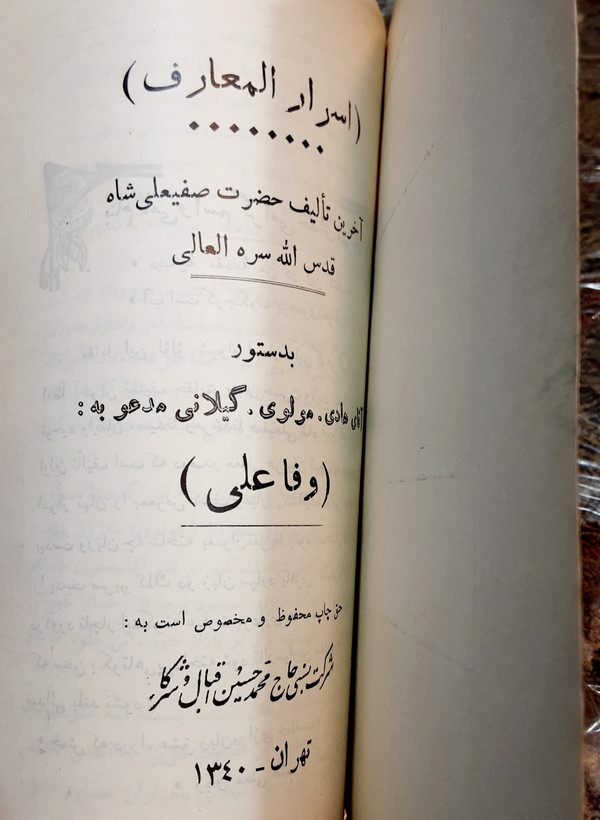 (اسرار المعارف)
آخرین تألیف حضرت صفیعلی شاه
قدس الله سره العالی
بدستور
آقای هادی . مولوی . گیلانی مدعو به :
(وفا علی)
حق چاپ محفوظ و مخصوص است به :
شرکت نسبی حاج محمد حسین اقبال و شرکاء
تهران - ۱۳۴۰